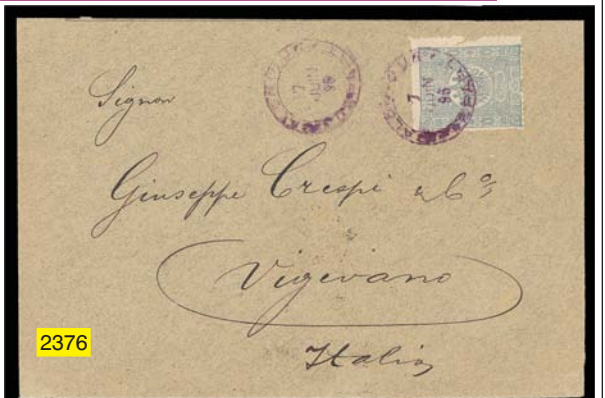 17
JUIN
96
7
JUIN
96
Signor
Giuseppe Crespi & Cº
Vigevano
Italia
2376